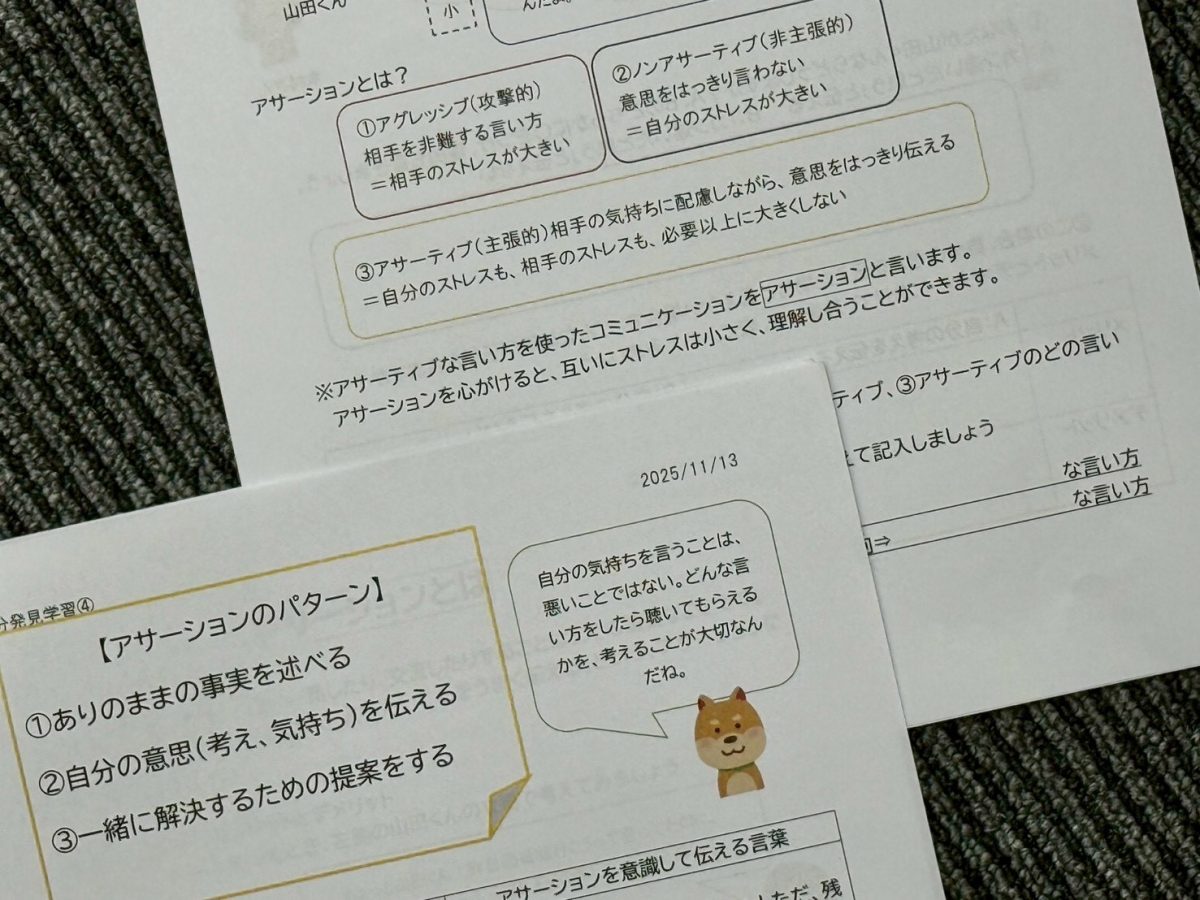 山田くん
小
んだよ。
アサーションとは？
①アグレッシブ（攻撃的）
相手を非難する言い方
＝相手のストレスが大きい
②ノンアサーティブ（非主張的）
意思をはっきり言わない
＝自分のストレスが大きい
③アサーティブ（主張的）相手の気持ちに配慮しながら、意思をはっきり伝える
＝自分のストレスも、相手のストレスも、必要以上に大きくしない
※アサーティブな言い方を使ったコミュニケーションをアサーションと言います。
アサーションを心がけると、互いにストレスは小さく、理解し合うことができます。
ティブ、③アサーティブのどの言い
て記入しましょう
な言い方
な言い方
⇒
2025/11/13
分発見学習④
【アサーションのパターン】
①ありのままの事実を述べる
②自分の意思（考え、気持ち）を伝える
③一緒に解決するための提案をする
自分の気持ちを言うことは、
悪いことではない。どんな言
い方をしたら聴いてもらえる
かを、考えることが大切なん
だね。
アサーションを意識して伝える言葉
ただ、残